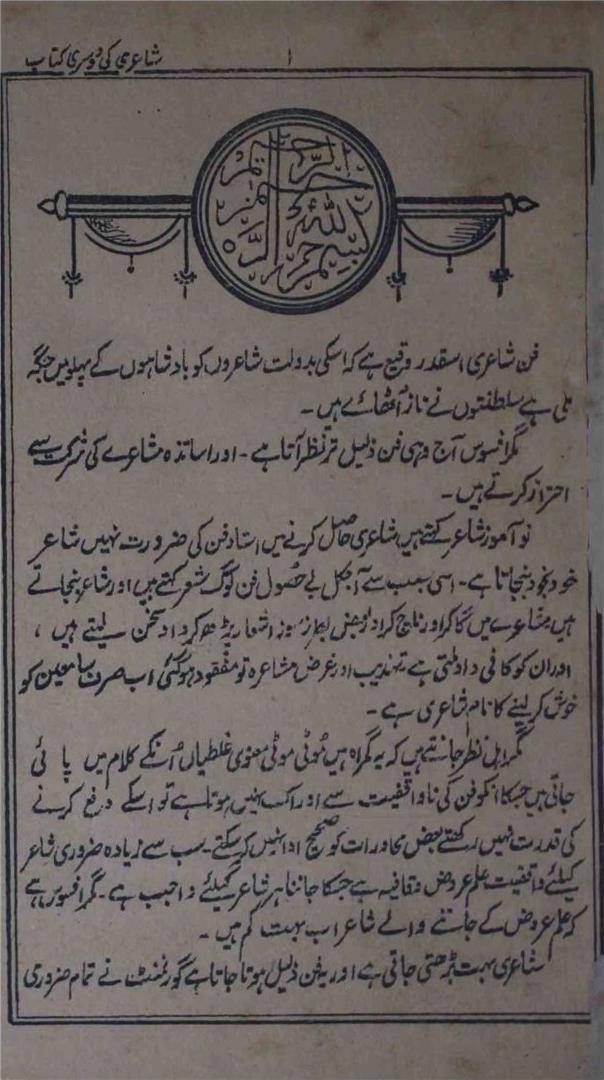 شاعری کی دوسری کتاب
۱
بسم اللہ الرحمن الرحیم
فن شاعری اسقدر وقیع ہے کہ اسکی بدولت شاعروں کو بادشاہوں کے پہلو میں جگہ
ملی ہے سلطنتوں نے ناز اُٹھائے ہیں۔
مگر افسوس آج وہی فن ذلیل تر نظر آتا ہے۔ اور اساتذہ مشاعرے کی شرکت سے
احتراز کرتے ہیں۔
نو آموز شاعر کہتے ہیں شاعری حاصل کرنے میں استاد فن کی ضرورت نہیں شاعر
خود بخود بنجاتا ہے۔ اسی سبب سے آجکل بے حصول فن لوگ شعر کہتے ہیں اور شاعر بنجاتے
ہیں مشاعرے میں گا کر اور ناچ کر اور بعض بطرز سوز اشعار پڑھ کر داد سخن لیتے ہیں،
اور ان کو کافی داد ملتی ہے۔ تہذیب اور غرض مشاعرہ تو مفقود ہو گئی اب صرف سامعین کو
خوش کر لینے کا نام شاعری ہے۔
مگر اہل نظر جانتے ہیں کہ یہ گمراہ ہیں مُوٹی موٹی معنوی غلطیاں اُنکے کلام میں پائی
جاتی ہیں جسکا انکو فن کی ناواقفیت سے ادراک نہیں ہوتا ہے تو اسکے دفع کرنے
کی قدرت نہیں رکھتے بعض محاورات کو صحیح ادا نہیں کرسکتے۔ سب سے زیادہ ضروری شاعر
کیلئے واقفیت علم عروض و قافیہ ہے جسکا جاننا ہر شاعر کیلئے واجب ہے۔ مگر افسوس ہے
کہ علم عروض کے جاننے والے شاعر اب بہت کم ہیں۔
شاعری بہت بڑھتی جاتی ہے اور یہ فن ذلیل ہوتا جاتا ہے گورنمنٹ نے تمام ضروری